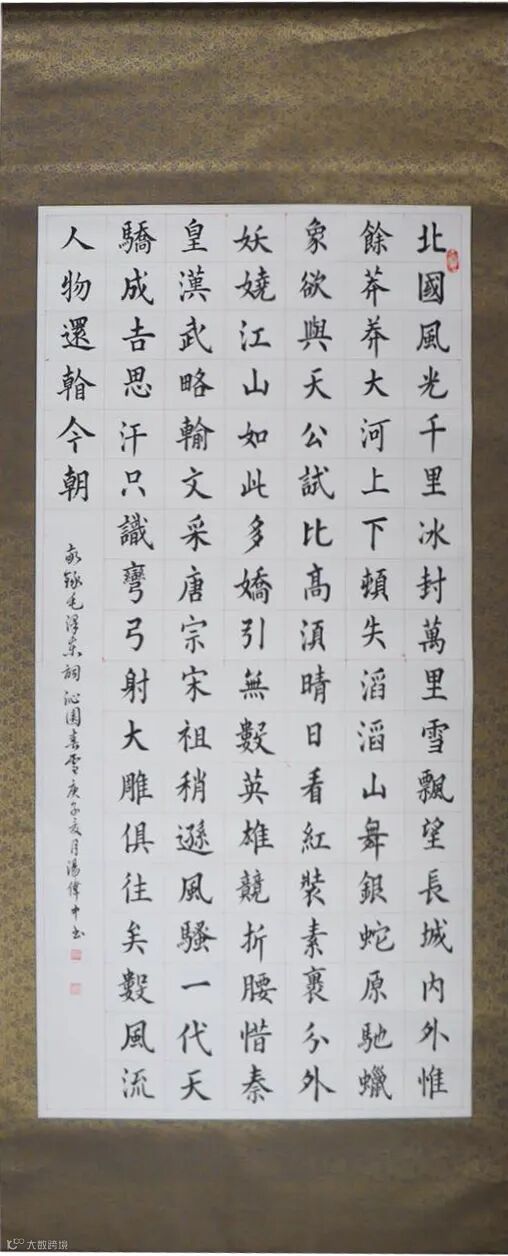 北國風光千里冰封萬里雪飄望長城内外惟
餘莽莽大河上下頓失滔滔山舞銀蛇原馳蠟
象欲與天公試比高湏晴日看紅裝素裹分外
妖嬈江山如此多嬌引無數英雄競折腰惜秦
皇漢武略輸文采唐宗宋祖稍遜風騷一代天
驕成吉思汗只識彎弓射大雕俱往矣數風流
人物還看今朝
敬録毛澤東詞沁園春雪庚子亥月湯偉中書
大数跨境